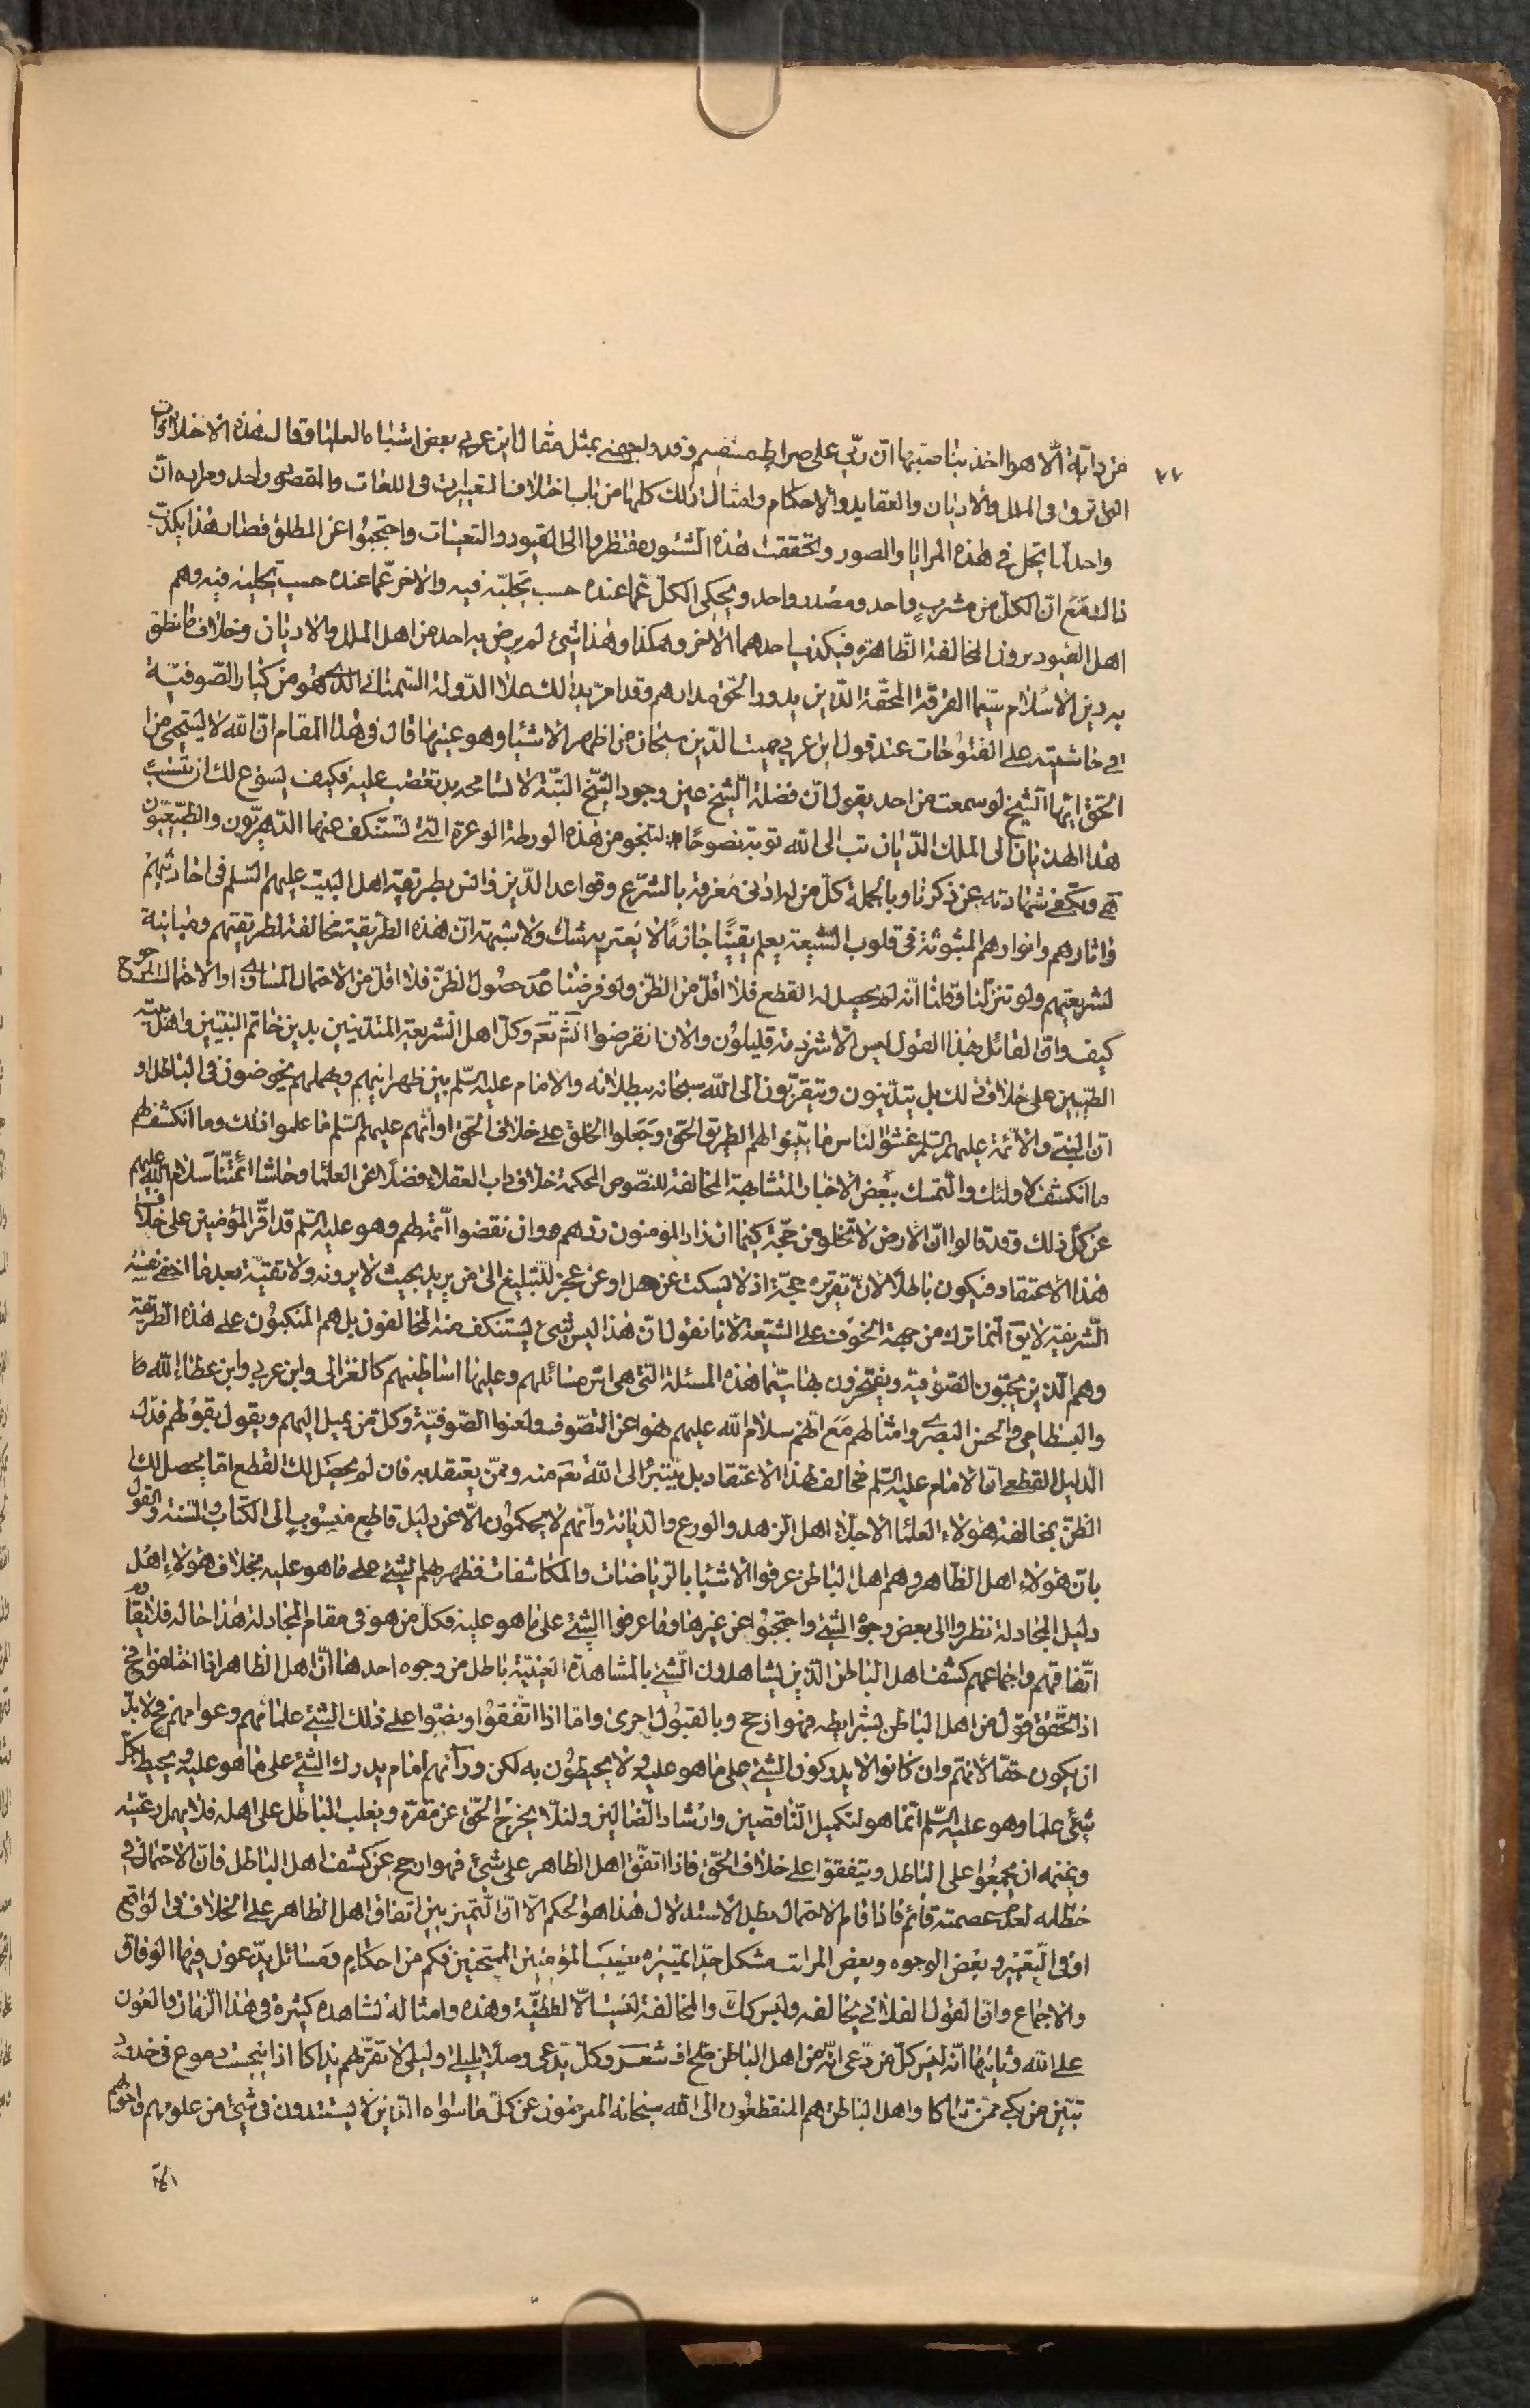 من دابة الا هو اخذ بناصيتها ان ربي على صراط مستقيم وقد ولجهنى بمثل مقال ابن عربي بعض اشباه العلماء وقال هذه الاختلافات
التى ترون فى الملل والاديان والعقايد والاحكام وامثال ذلك كلها من باب اختلاف التعبيرات فى اللغات والمقصود واحد ومراده ان
واحد لما تجلى فى هذه المرايا والصور وتحققت هذه الشئون فنظروا الى القيود والتعينات واحتجبوا عن المطلق فصار هذا يكذب
ذاك مع ان الكل من مشرب واحد ومصدر واحد ويحكى الكل عما عنده حسب تجليه فيه والاخر عما عنده حسب تجليه فيه وهم
اهل القيود يرون المخالفة الظاهرة فيكذب احدهما الاخر وهكذا وهذا شىء لم يرض به احد من اهل الملل والاديان وخلاف ما نطق
به دين الاسلام سيما الفرقة المحقة الذين يدور الحق مدارهم وقد امر بذلك علاء الدولة السمنانى الذى هو من كبار الصوفية
فى حاشيته على الفتوحات عند قول ابن عربي مميت الدين سبحان من اظهر الاشياء وهو عينها قال فى هذا المقام ان الله لا يستحيى من
الحق ايها الشيخ لو سمعت من احد يقول ان فضلة الشيخ عين وجود الشيخ البتة لا تسامحه بل تغضب عليه فكيف يسوغ لك ان تنسب
هذا الهذيان الى الملك الديان تب الى الله توبة نصوحا لتنجو من هذه الورطة الوعرة التى تستنكف عنها الدهريون والطبيعيون
هى ويكفى شهادته عن ذكرنا وبالجملة كل من له ادنى معرفة بالشرع وقواعد الدين وانس بطريقة اهل البيت عليهم السلم فى احاديثهم
واثارهم وانوارهم المثبوثة فى قلوب الشيعة يعلم يقينا جازما لا يعتريه شك ولا شبهة ان هذه الطريقة مخالفة لطريقتهم ومباينة
لشريعتهم ولو تنزلنا وقلنا انه لم يحصل له القطع فلا اقل من الظن ولو فرضنا عدم حصول الظن فلا اقل من الاحتمال المساوى او الاحتمال المرجوح
كيف وان القائل بهذا القول ليس الا شرذمة قليلون والان انقرضوا انشم تعم وكل اهل الشريعة المتدينين بدين خاتم النبيين واهل بيته
الطيبين على خلاف ذلك بل يتدينون ويتقربون الى الله سبحانه ببطلانه والامام عليه السلم بين ظهرانيهم ويمهلهم يخوضون فى الباطل او
ان النبى والائمة عليهم السلم غشوا الناس ما بينوا لهم الطريق الحق وجعلوا الخلق على خلاف الحق او انهم عليهم السلم ما علموا ذلك وما انكشف لهم
ما انكشف لاولئك والتمسك ببعض الاخبار المتشابهة المخالفة للنصوص المحكمة خلاف داب العقلاء فضلا عن العلماء وحاشا ائمتنا سلام الله عليهم
عن كل ذلك وقد قالوا ان الارض لا تخلو من حجة كيما ان زاد المؤمنون ردهم وان نقصوا اتمه لهم وهو عليه السلم قد اقر المؤمنين على خلاف
هذا الاعتقاد فيكون باطلا لان تقريره حجة اذ لا يسكت عن جهل او عن عجز للتبليغ الى من يريد بحيث لا يرونه ولا تقية بعد ما اخفى نفسه
الشريفة لا يق انما ترك من جهة الخوف على الشيعة لانا نقول ان هذا ليس شىء يستنكف منه المخالفون بل هم المنكبون على هذه الطريقة
وهم الذين يحبون الصوفية ويفتخرون بها سيما هذه المسئلة التى هى اس مسائلهم وعليها اساطينهم كالغزالى وابن عربي وابن عطاء الله
والبسطامى والحسن البصرى وامثالهم مع انهم سلام الله عليهم نهوا عن التصوف ولعنوا الصوفية وكل من يميل اليهم ويقول بقولهم فدل
الدليل القطعى ان الامام عليه السلم مخالف لهذا الاعتقاد بل يتبرأ الى الله تعم منه وممن يعتقد به فان لم يحصل لك القطع اما يحصل لك
الظن بمخالفة هؤلاء العلماء الاجلاء اهل الزهد والورع والديانة وانهم لا يحكمون الا عن دليل قاطع منسوب الى الكتاب والسنة والقول
بان هؤلاء اهل الظاهر وهم اهل الباطن عرفوا الاشياء بالرياضات والمكاشفات فظهر لهم الشىء على ما هو عليه بخلاف هؤلاء اهل
دليل المجادلة نظروا الى بعض وجوه الشىء واحتجبوا عن غيرها وما عرفوا الشىء على ما هو عليه فكل من هو فى مقام المجادلة هذا حاله فلا يقاوم
اتفاقهم واجماعهم كشف اهل الباطن الذين يشاهدون الشىء بالمشاهدة العينية باطل من وجوه احدها ان اهل الظاهر اذا اختلفوا فح
اذا تحقق قول من اهل الباطن بشرايطه فهو ارجح وبالقبول احرى واما اذا اتفقوا ونصوا على ذلك الشىء علماؤهم وعوامهم فح لابد
ان يكون حقا لانهم وان كانوا لا يدركون الشىء على ما هو عليه ولا يحيطون به لكن ورآئهم امام يدرك الشىء على ما هو عليه ويحيط بكل
شىء علما وهو عليه السلم انما هو لتكميل الناقصين وارشاد الضالين ولئلا يخرج الحق عن مقره ويغلب الباطل على اهله فلا يهمل رعيته
وغنمه ان يجمعوا على الباطل ويتفقوا على خلاف الحق فاذا اتفق اهل الظاهر على شىء فهو ارجح عن كشف اهل الباطل فان الاحتمال فى
خطائه لعدم عصمته قائم فاذا قام الاحتمال بطل الاستدلال هذا هو الحكم الا ان التميز بين اتفاق اهل الظاهر على الخلاف فى الواقع
او فى التغيير وبعض الوجوه وبعض المراتب مشكل جدا تميزه نصيب المؤمنين الممتحنين فكم من احكام ومسائل يدعون فيها الوفاق
والاجماع وان القول الفلانى يخالفه وليس كك والمخالفة ليست الا لفظية وهذه وامثاله لشاهده كثيرة فى هذا الزمان والعون
على الله وثانيها انه ليس كل من يدعى انه من اهل الباطن صح اف شعر وكل يدعى وصلا بليلى وليلى لا تقر لهم بذاكا اذا انبجست دموع فى خدود
تبين من بكى ممن تباكا واهل الباطن هم المنقطعون الى الله سبحانه المعرضون عن كل ما سواه الذين لا يستندون فى شىء من علومهم واحوالهم
الا